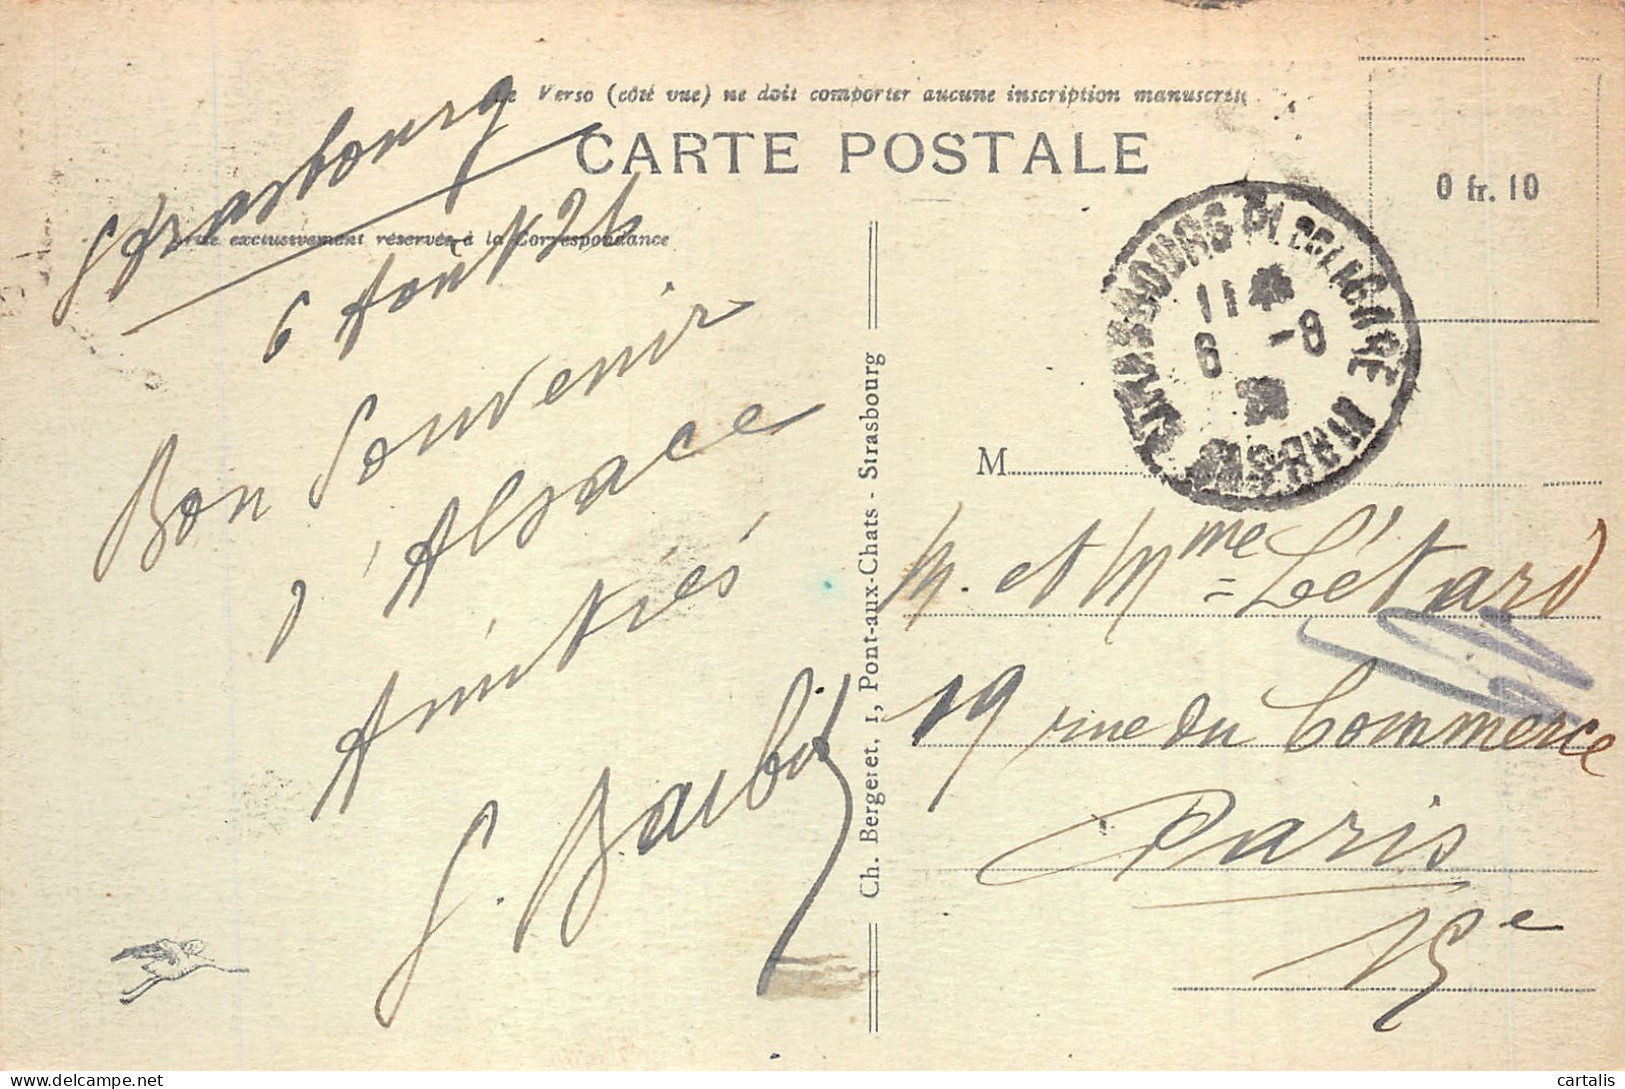 Verso (côté vue) ne doit comporter aucune inscription manuscrite
CARTE POSTALE
0 fr. 10
exclusivement réservée à la Correspondance
Strasbourg
6 Août 26
Bon Souvenir
d'Alsace
Amitiés
G. Barbot
Ch. Bergeret, 1, Pont-aux-Chats - Strasbourg
STRASBOURG PL
BAS-RHIN
11
6 -8
M
M. et Mme Létard
19 rue du Commerce
Paris
15e
cartalis